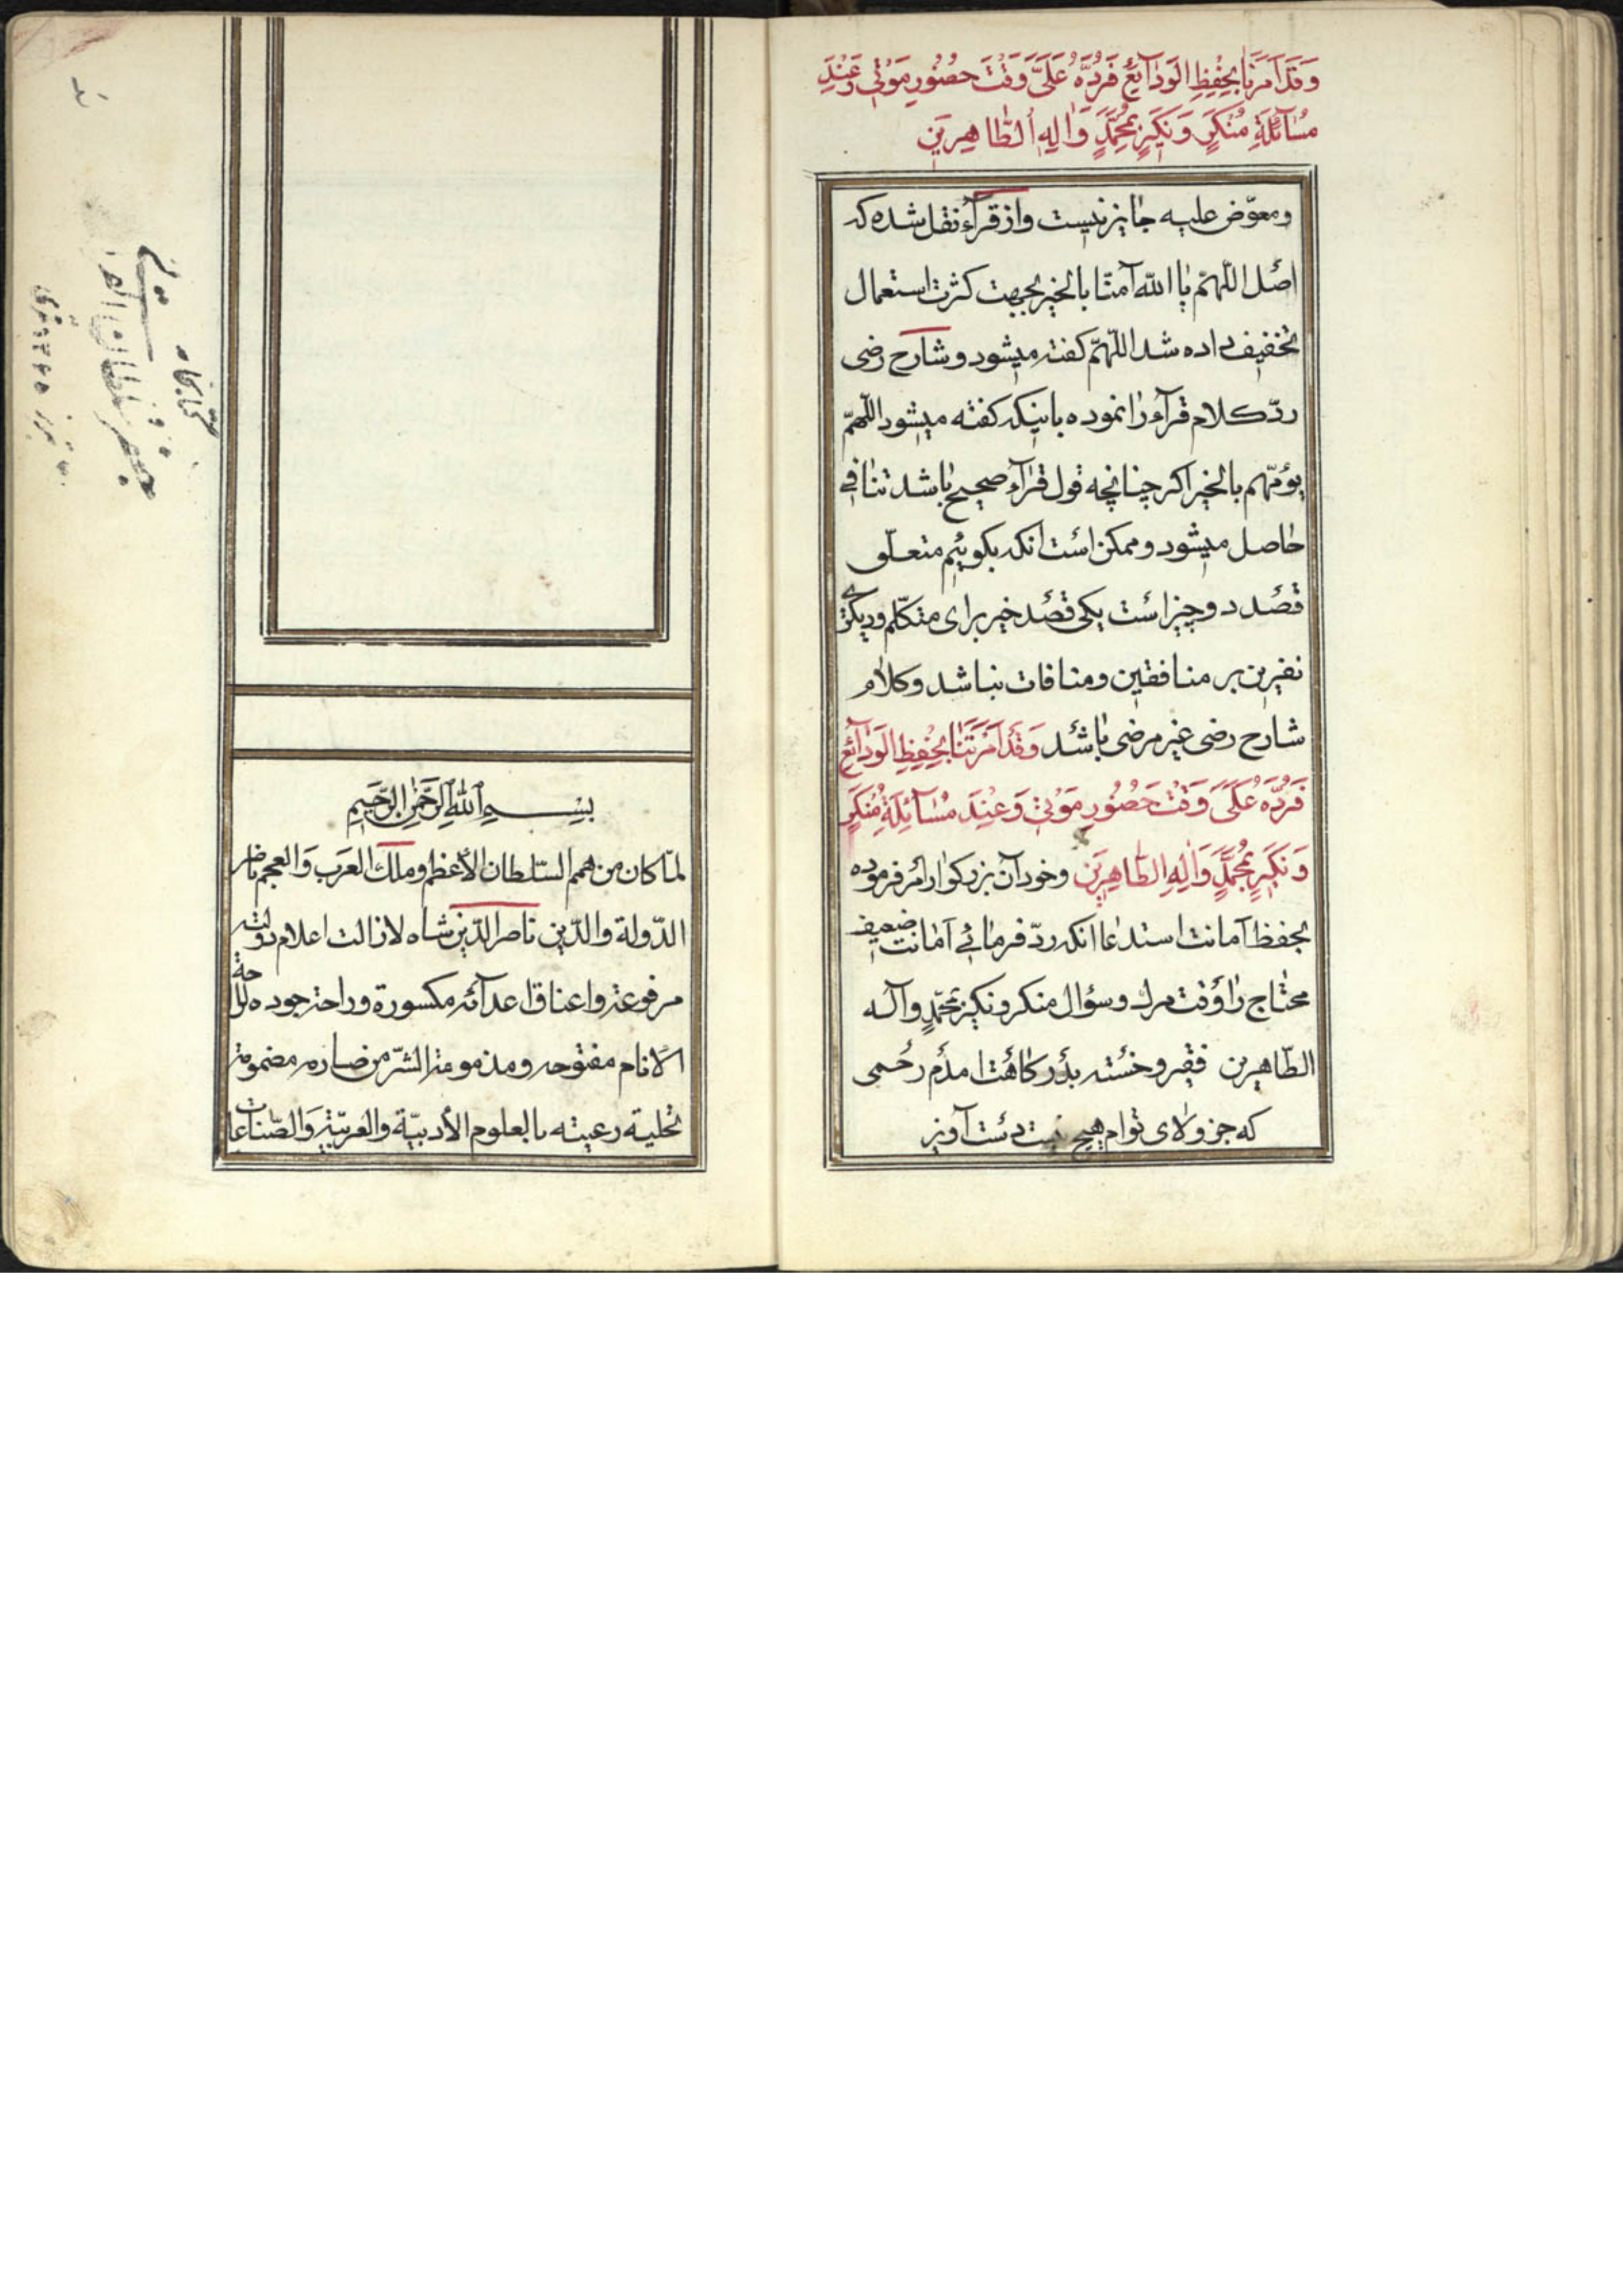 وَقَدْ اَمَرْتَنَا بِحِفْظِ الْوَدَآئِعِ فَرُدَّهُ عَلَيَّ وَقْتَ حُضُورِ مَوْتِي وَعِنْدَ
مُسَآئَلَةِ مُنْكَرٍ وَنَكِيرٍ بِمُحَمَّدٍ وَالِهِ الطَّاهِرِينَ
ومعوّض علیه جایز نیست واز قرآء نقل شده که
اصل اللّهمّ یا الله آمنّا بالخیر بجهت کثرت استعمال
تخفیف داده شد اللّهمّ کفته میشود و شارح رضی
ردّ کلام قرآء را نموده باینکه کفته میشود اللّهمّ
یؤمّهم بالخیر اکر چنانچه قول قرآء صحیح باشد تنافی
حاصل میشود وممکن است انکه بکوئیم متعلّق
قصد دو چیز است یکی قصد خیر برای متکلّم ودیکری
نفرین بر منافقین و منافات نباشد وکلام
شارح رضی غیر مرضی باشد وَقَدْ اَمَرْتَنَا بِحِفْظِ الْوَدَآئِعِ
فَرُدَّهُ عَلَيَّ وَقْتَ حُضُورِ مَوْتِي وَعِنْدَ مُسَآئِلَةِ مُنْكَرٍ
وَنَكِيرٍ بِمُحَمَّدٍ وَالِهِ الطَّاهِرِينَ وخود آن بزرکوار امر فرموده
بحفظ آمانت استدعا انکه ردّ فرمائی آمانت ضعیف
محتاج را وقت مرك وسؤال منکر ونکیر بمحمّدٍ وآله
الطّاهرین فقیر وخسته بدرکاهت امدم رحمی
که جز ولای توام هیچ نیست دست آویز
بِسْمِ اللهِ الرَّحْمٰنِ الرَّحِيمِ
لمّا كان من همم السّلطان الأعظم وملك العَرَب وَالعجم ناصر
الدّولة والدّين ناصر الدّين شاه لازالت اعلام دولته
مرفوعة واعناق اعدآئه مكسورة وراحة جوده لراحة
الانام مفتوحه ومذمومة الشرّ من صارم مضمومة
تحلية رعيته بالعلوم الأدبيّة والعربيّة وَالصّناعات
کتابخانه